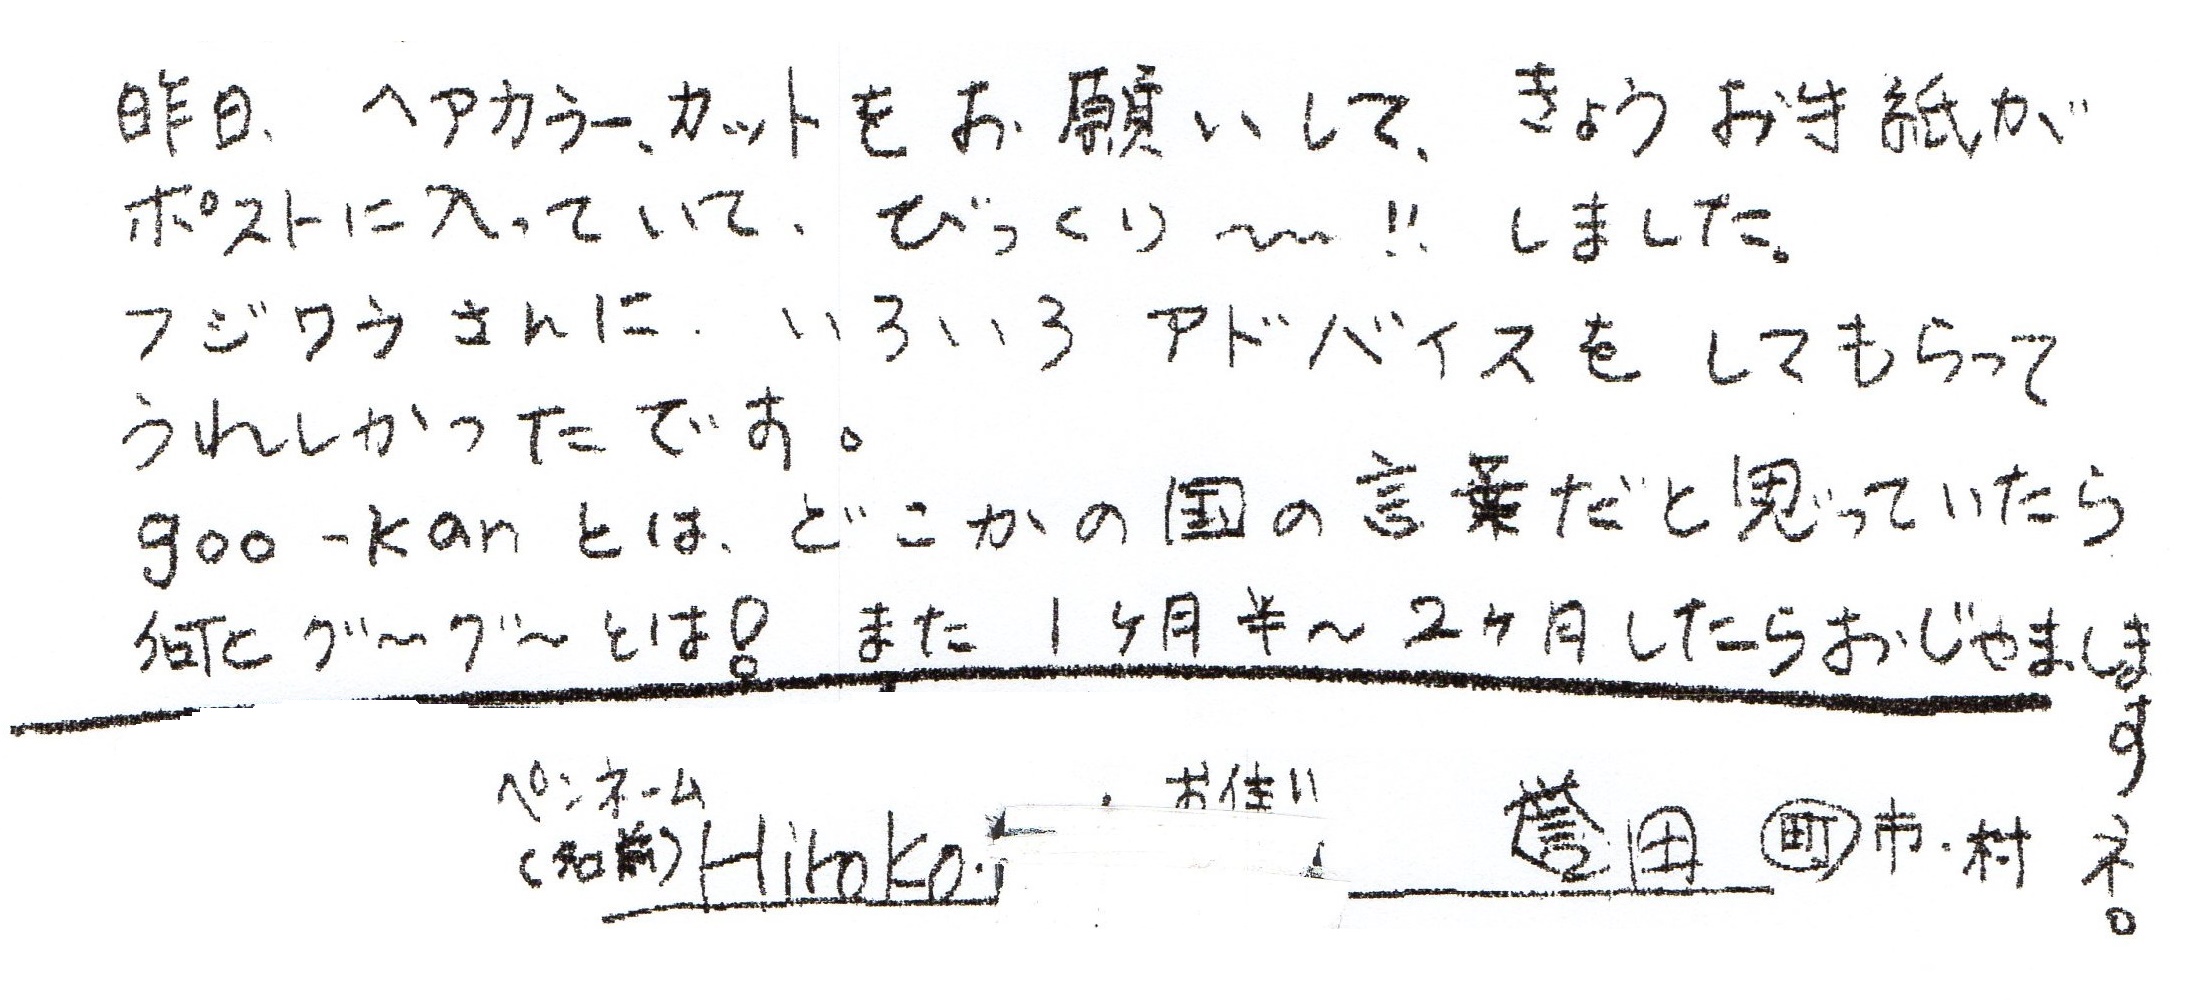 昨日、ヘアカラー、カットをお願いして、きょうお手紙が
ポストに入っていて、びっくり〜〜!!しました。
フジワラさんに、いろいろアドバイスをしてもらって
うれしかったです。
goo-kanとは、どこかの国の言葉だと思っていたら
何とグ〜グ〜とは! また1ヶ月半〜2ヶ月したらおじゃましますネ。
ペンネーム
(名前) Hiroko. お住い 誉田 町 市・村